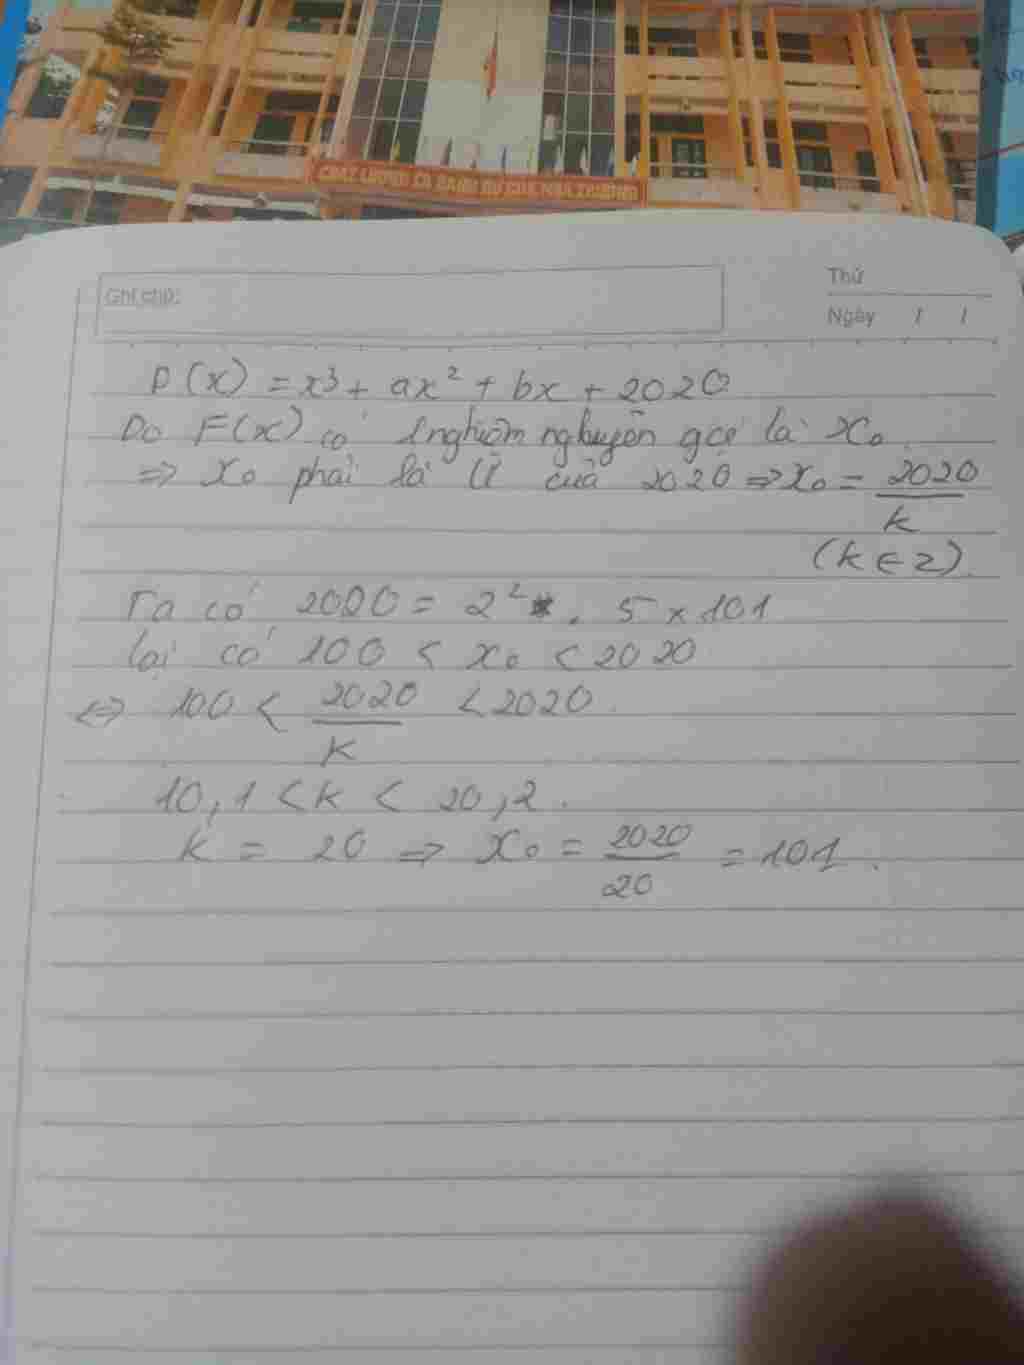 CHẤT LƯỢNG LÀ DANH DỰ CỦA NHÀ TRƯỜNG
Ghi chú:
Thứ
Ngày / /
P(x) = x³ + ax² + bx + 2020
Do F(x) có 1 nghiệm nguyên gọi là x₀
=> x₀ phải là Ư của 2020 => x₀ = 2020/k
(k ∈ Z).
Ta có 2020 = 2² . 5 x 101
lại có 100 < x₀ < 2020
<=> 100 < 2020/k < 2020.
10,1 < k < 20,2.
k = 20 => x₀ = 2020/20 = 101.